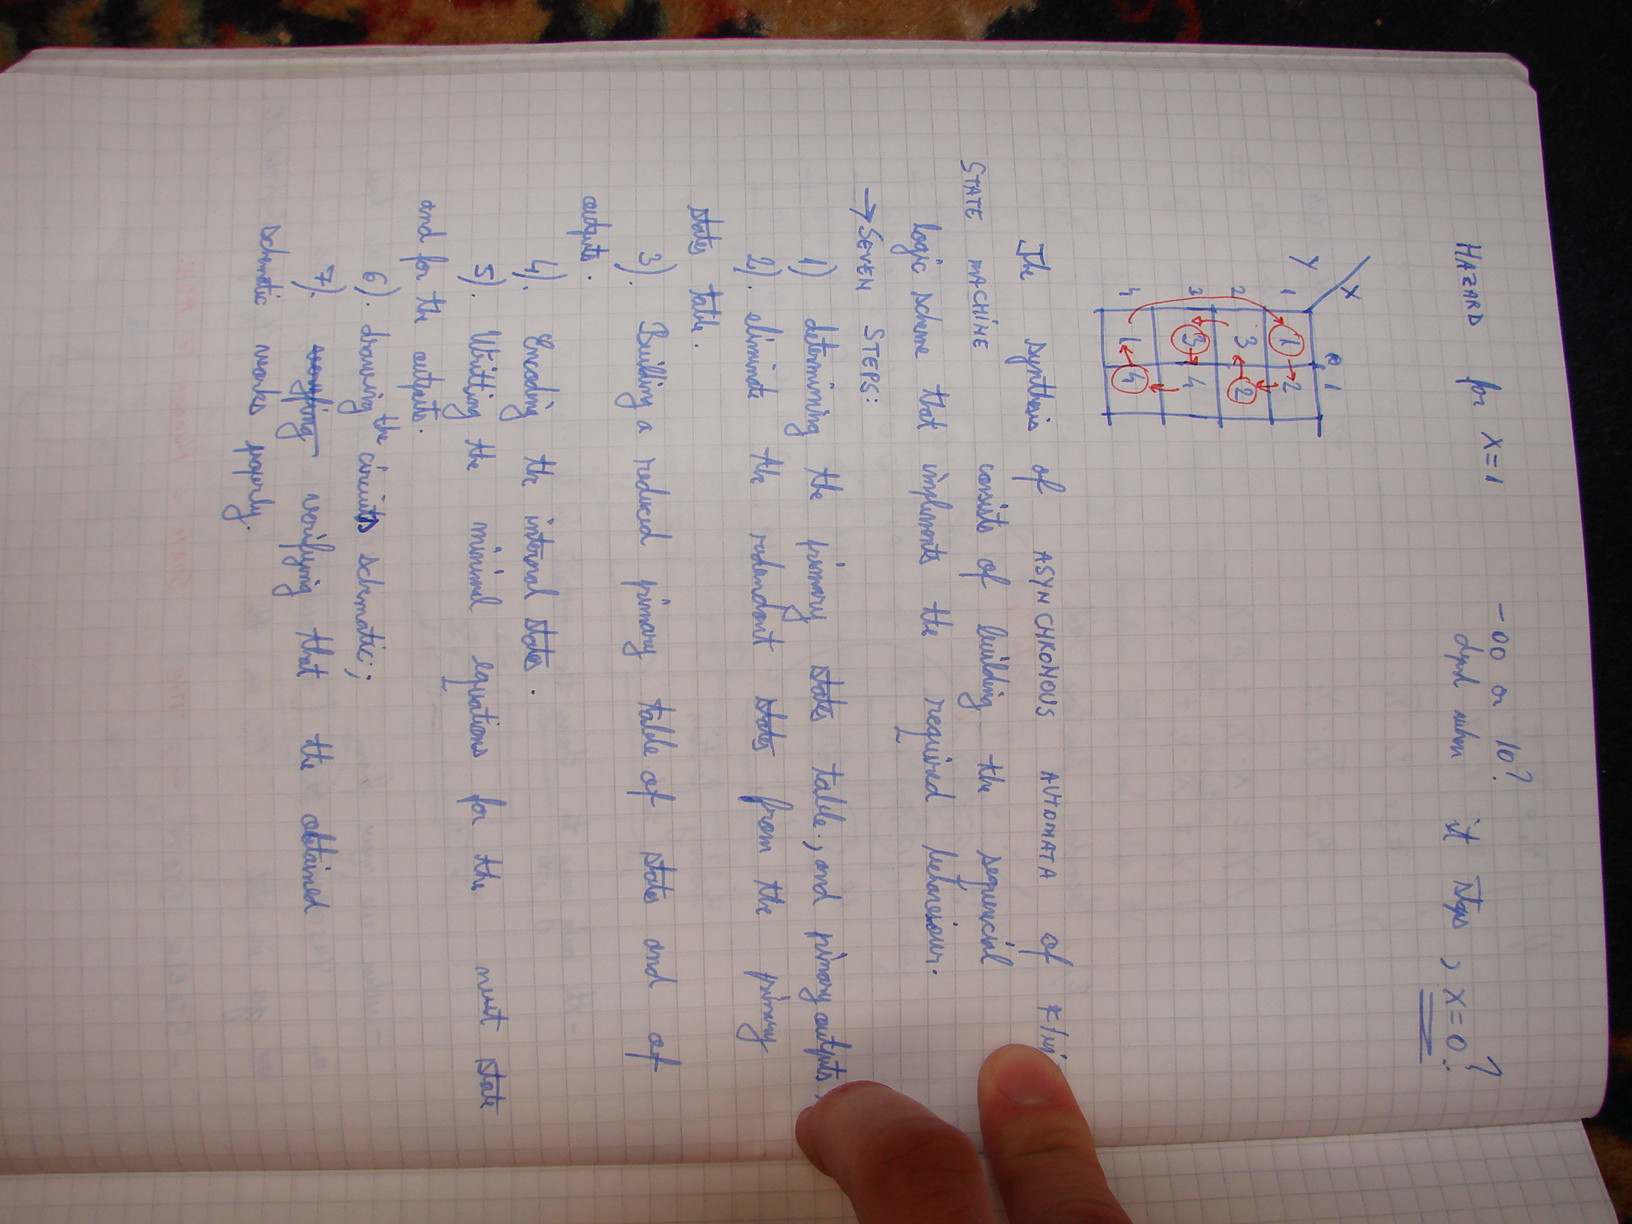 HAZARD for X=1 - 00 or 10?
depend when it stops, X=0?
Y X 0 1
1 1 2
2 3 2
3 3 4
4 1 4
The synthesis of ASYNCHRONOUS AUTOMATA of
STATE MACHINE consists of building the sequencial
logic scheme that implements the required behaviour.
→ SEVEN STEPS:
1) determining the primary states table, and primary outputs,
2). eliminate the redundant states from the primary
states table.
3). Building a reduced primary table of states and of
outputs.
4). Encoding the internal states.
5). Writting the minimal equations for the next state
and for the outputs.
6). drawing the circuits schematic;
7). verifying that the obtained
schematic works properly.